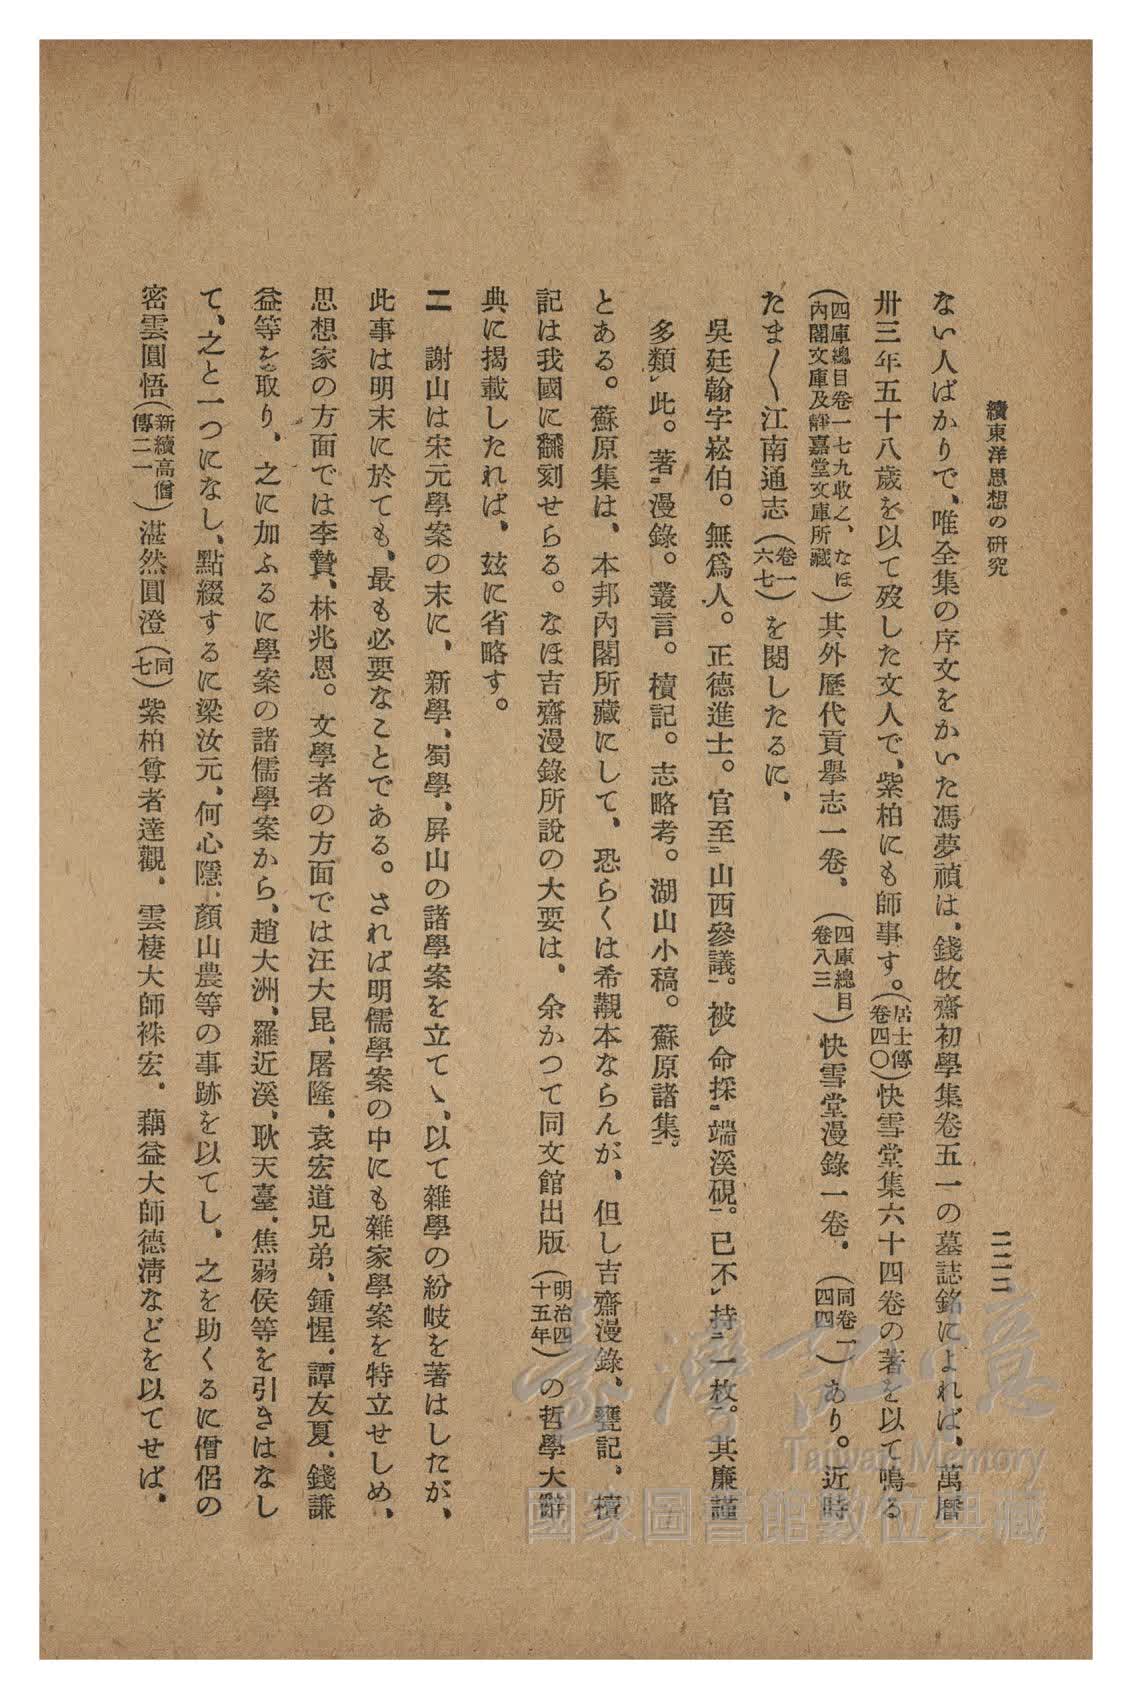 續東洋思想の研究
二二二
ない人ばかりで、唯全集の序文をかいた馮夢禎は、錢牧齋初學集卷五一の墓誌銘によれば、萬曆
卅三年五十八歲を以て歿した文人で、紫柏にも師事す。(居士傳卷四〇)快雪堂集六十四卷の著を以て鳴る
(四庫總目卷一七九收之、なほ內閣文庫及靜嘉堂文庫所藏)其外歷代貢擧志一卷、(四庫總目卷八三)快雪堂漫錄一卷、(同卷一四四)あり。近時
たま〱江南通志(卷一六七)を閱したるに、
吳廷翰字崧伯。無爲人。正德進士。官至二山西參議一。被レ命採二端溪硯一。已不レ持二一枚一。其廉謹
多類レ此。著二漫錄。叢言。櫝記。志略考。湖山小稿。蘇原諸集一。
とある。蘇原集は、本邦內閣所藏にして、恐らくは希覯本ならんが、但し吉齋漫錄、甕記、櫝
記は我國に飜刻せらる。なほ吉齋漫錄所說の大要は、余かつて同文館出版(明治四十五年)の哲學大辭
典に揭載したれば、玆に省略す。
二　謝山は宋元學案の末に、新學、蜀學、屛山の諸學案を立てゝ、以て雜學の紛岐を著はしたが、
此事は明末に於ても、最も必要なことである。されば明儒學案の中にも雜家學案を特立せしめ、
思想家の方面では李贄、林兆恩。文學者の方面では汪大昆、屠隆、袁宏道兄弟、鍾惺、譚友夏、錢謙
益等を取り、之に加ふるに學案の諸儒學案から、趙大洲、羅近溪、耿天臺、焦弱侯等を引きはなし
て、之と一つになし、點綴するに梁汝元、何心隱、顏山農等の事跡を以てし、之を助くるに僧侶の
密雲圓悟(新續高僧傳二一)湛然圓澄(同七)紫柏尊者達觀、雲棲大師袾宏、藕益大師德淸などを以てせば、
臺灣記憶
Taiwan Memory
國家圖書館數位典藏